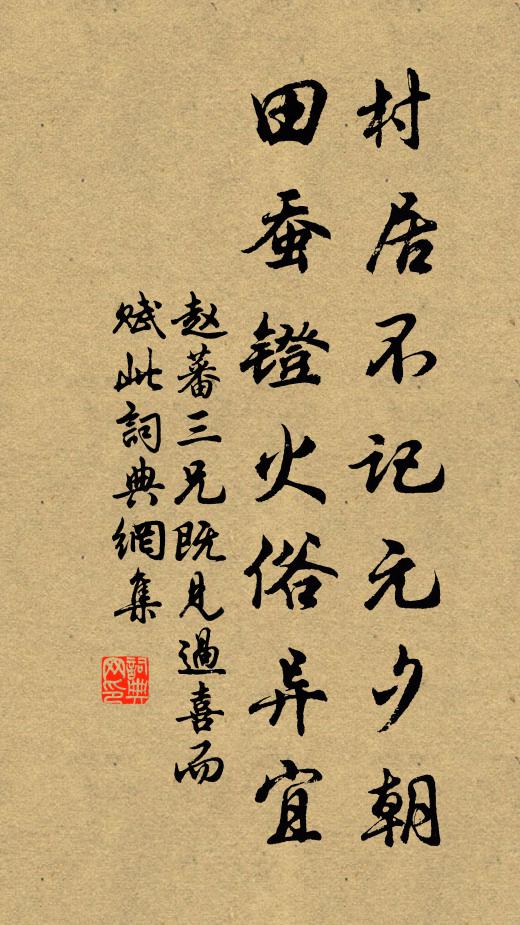 村居不记元夕朝
田蚕镫火俗异宜
赵蕃三兄既见過喜而
赋此詞典網集
詞典网印